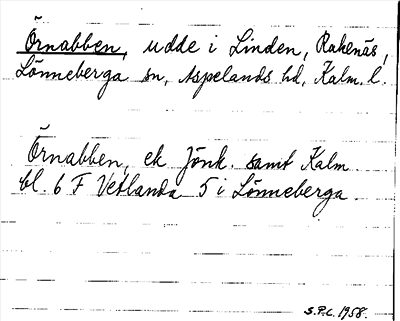 Örnabben, udde i Linden, Rakenäs,
Lönneberga sn, Aspelands hd, Kalm. l.
Örnabben, ek Jönk. samt Kalm
bl. 6 F Vetlanda 5 i Lönneberga
S.P.L. 1958.